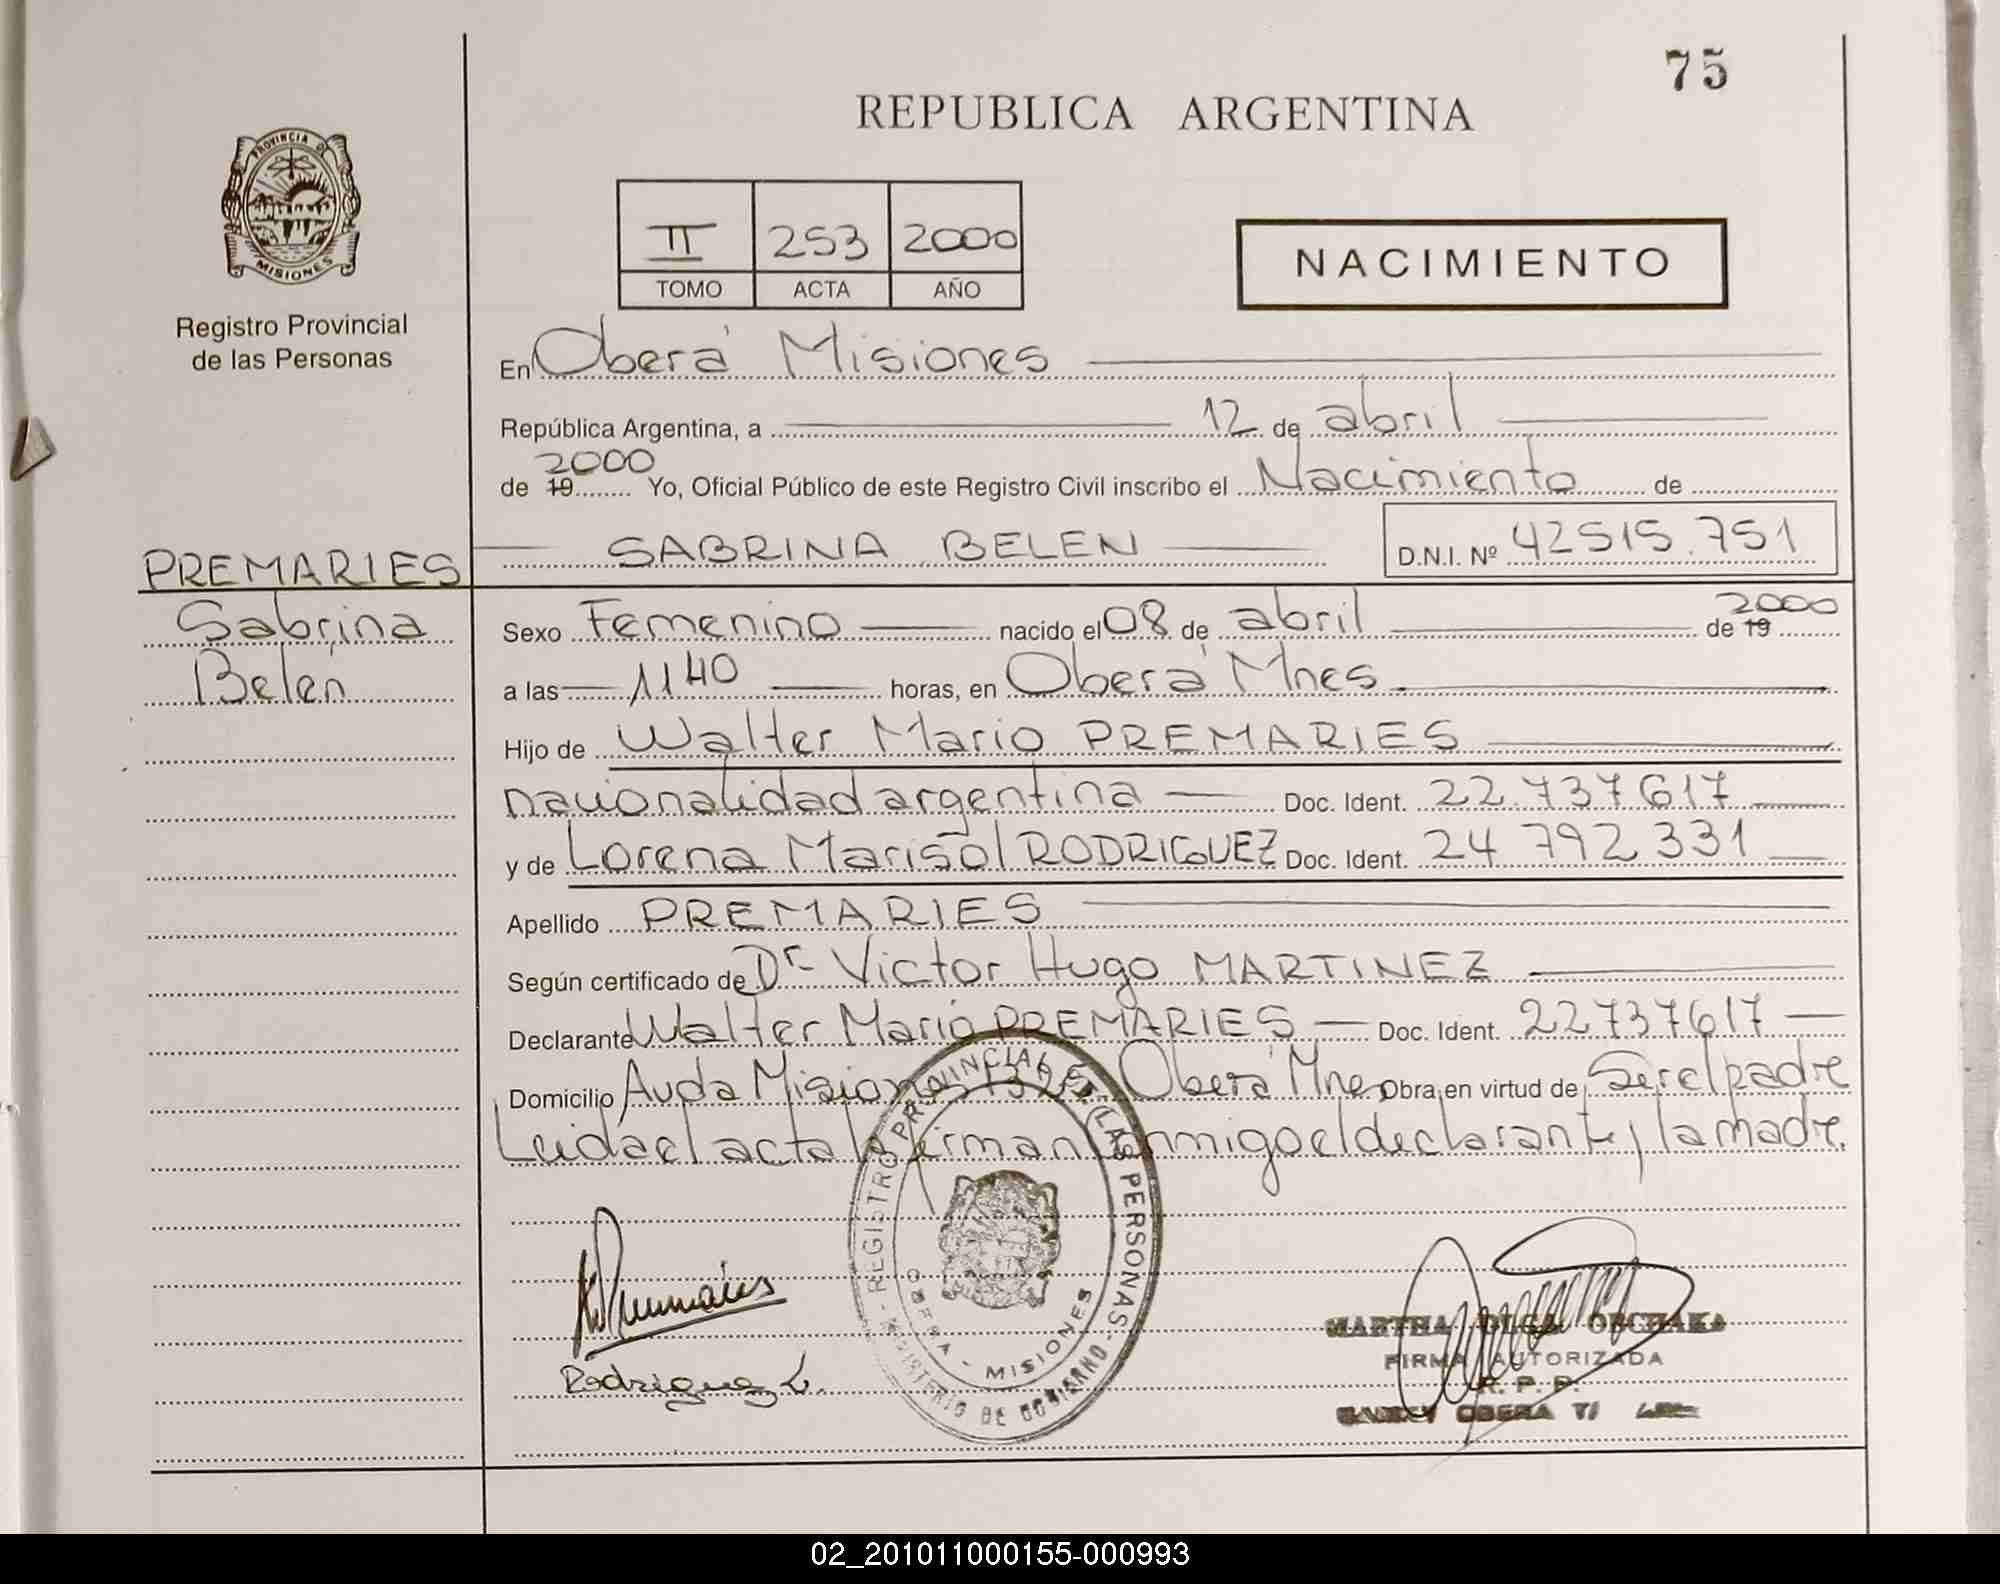 75
REPUBLICA ARGENTINA
PROVINCIA DE
MISIONES
Registro Provincial
de las Personas
II 253 2000
TOMO ACTA AÑO
NACIMIENTO
En Oberá Misiones
República Argentina, a 12 de abril
de 19 2000 Yo, Oficial Público de este Registro Civil inscribo el Nacimiento de
SABRINA BELEN D.N.I. Nº 42515.751
PREMARIES
Sabrina
Belén
Sexo Femenino nacido el 08 de abril de 19 2000
a las 1140 horas, en Oberá Mnes
Hijo de Walter Mario PREMARIES
nacionalidad argentina Doc. Ident. 22.737617
y de Lorena Marisol RODRIGUEZ Doc. Ident. 24 792 331
Apellido PREMARIES
Según certificado de Dr Victor Hugo MARTINEZ
Declarante Walter Mario PREMARIES Doc. Ident. 22737617
Domicilio Avda Misiones 1325 Oberá Mnes Obra en virtud de Ser el padre
Leida el acta la firman conmigo el declarante y la madre.
REGISTRO PROVINCIAL DE LAS PERSONAS
OBERA - MISIONES
MINISTERIO DE GOBIERNO
Rodriguez L.
MARTHA OLGA
FIRMA AUTORIZADA
R. P. P.
OBERA
02_201011000155-000993